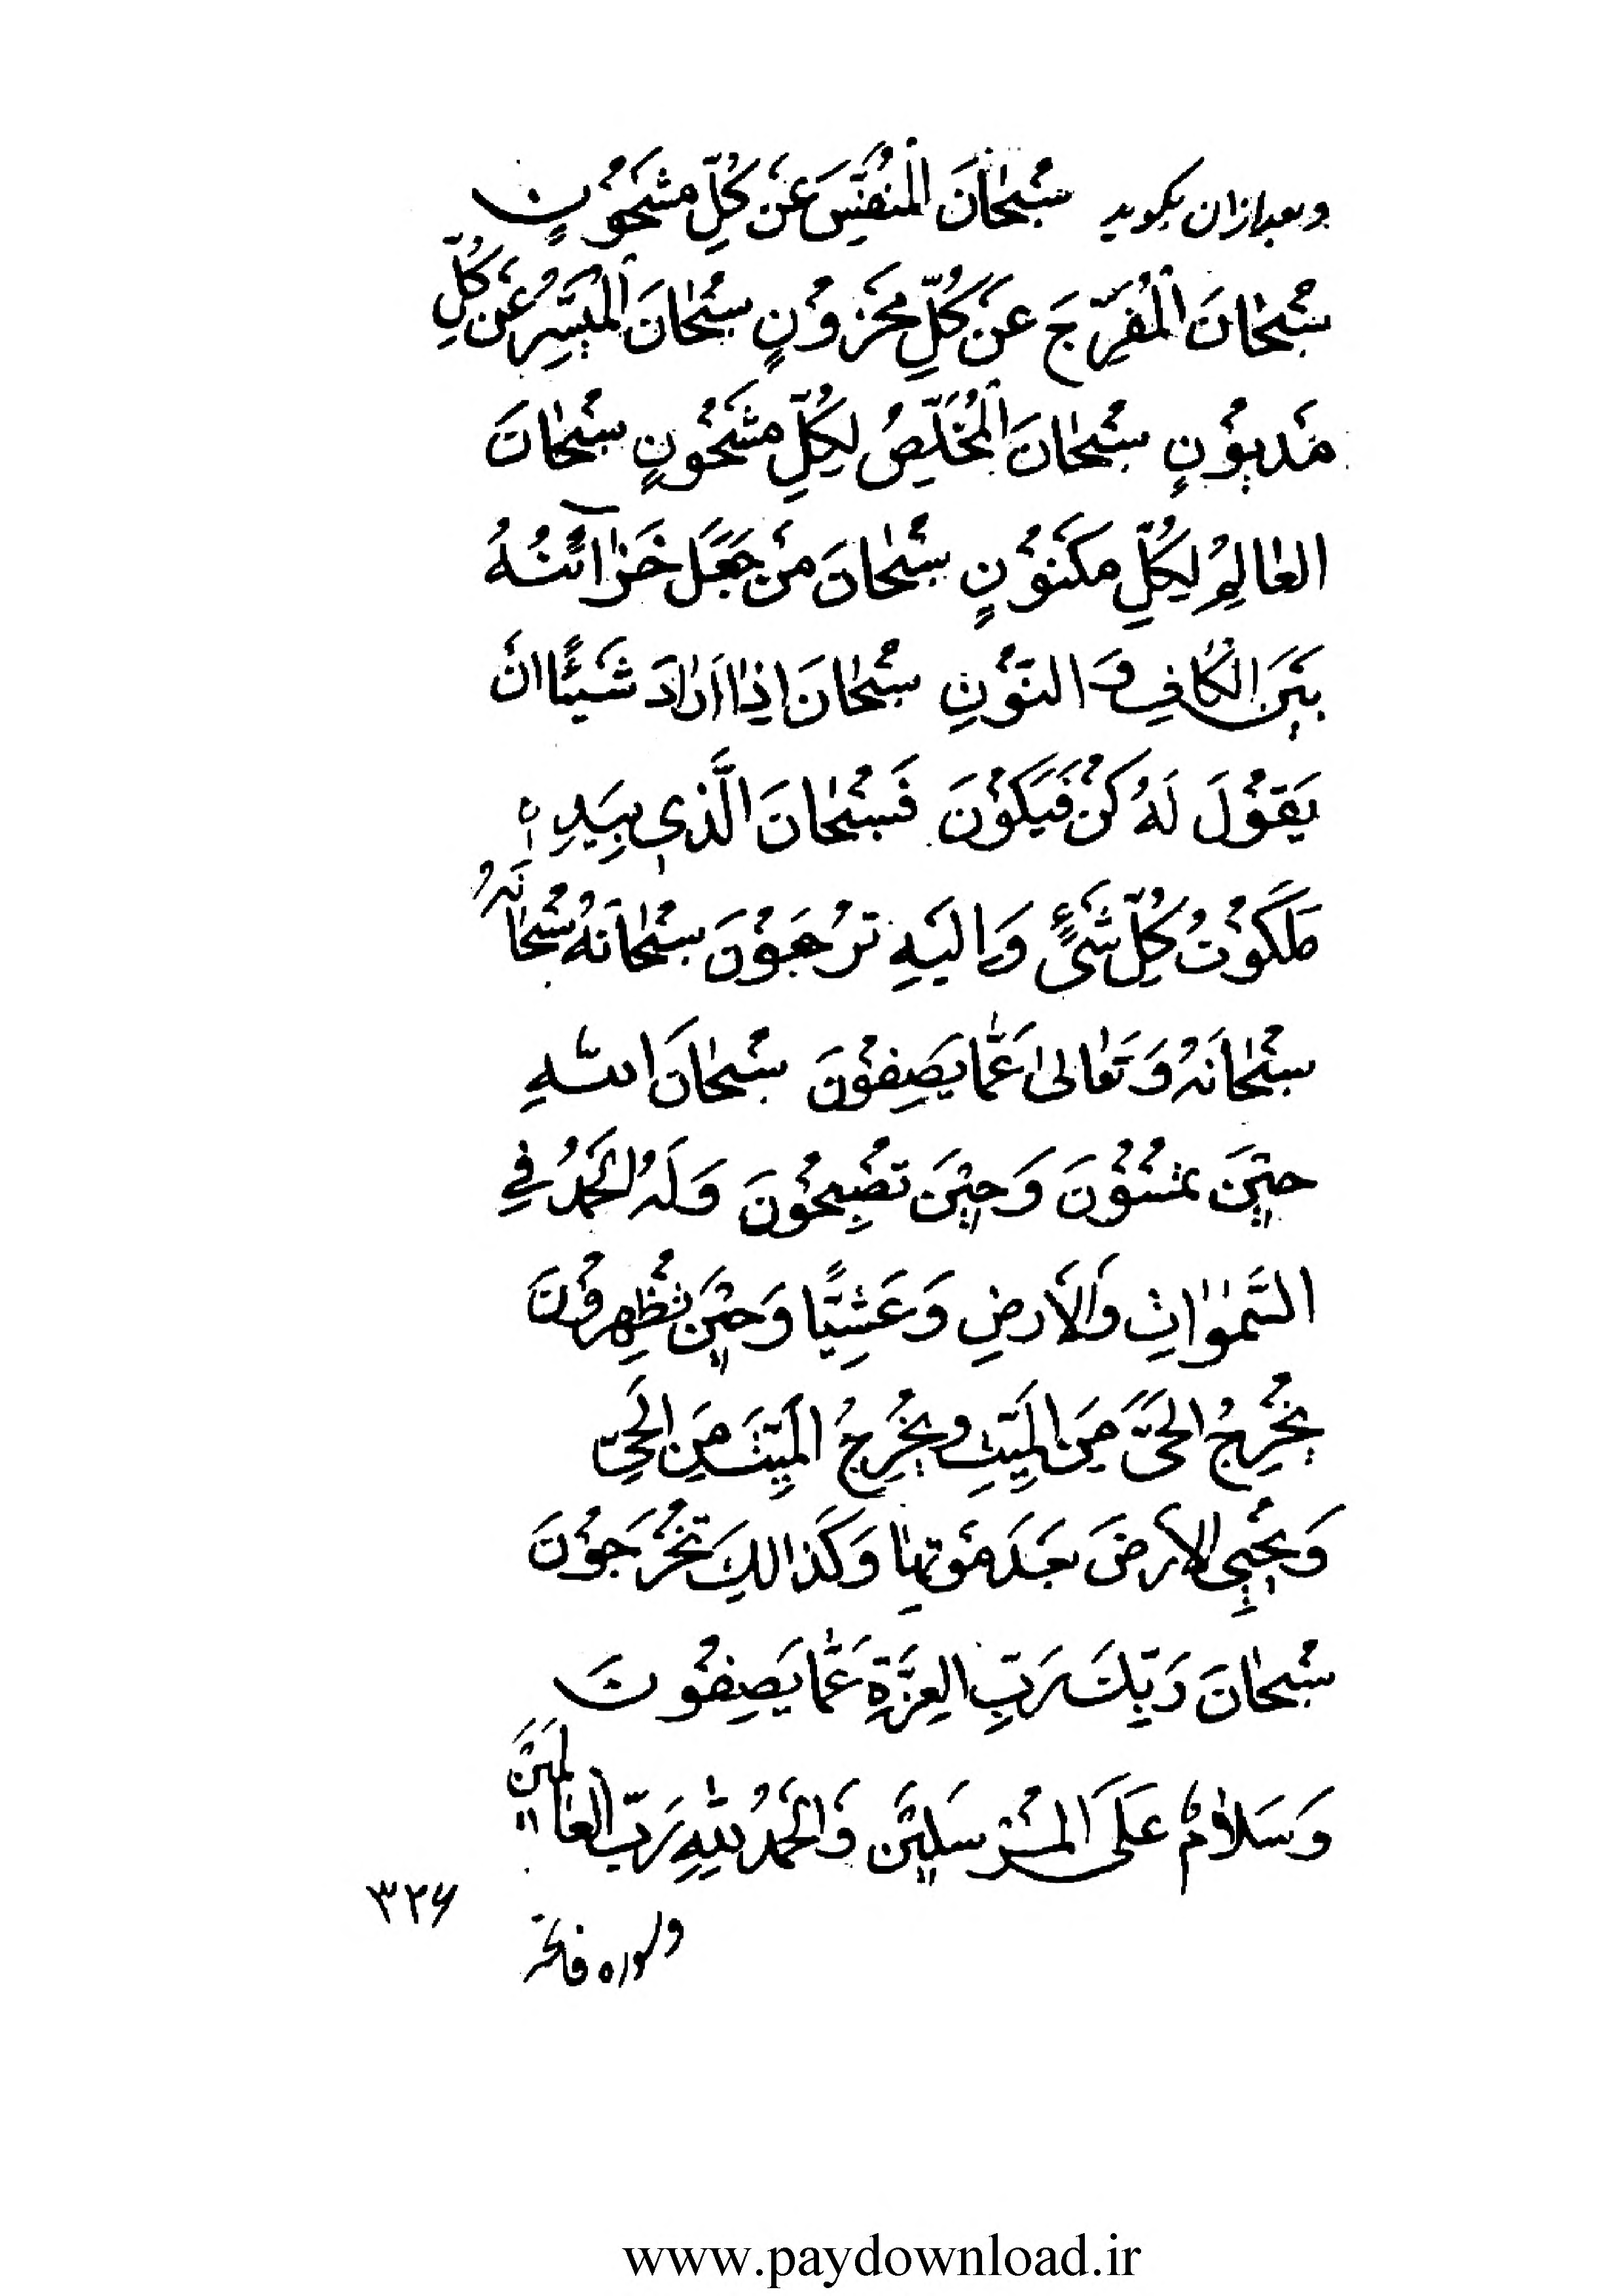 وبعد ازان بگوید سُبْحٰانَ الْمُنَفِّسَ عَنْ كُلِّ مَشْحُوْنٍ
سُبْحٰانَ الْمُفَرِّجَ عَنْ كُلِّ مَحْزُوْنٍ سُبْحٰانَ الْمُيَسِّرُ عَنْ كُلِّ
مَدْيُوْنٍ سُبْحٰانَ الْمُخَلِّصُ لِكُلِّ مَشْحُوْنٍ سُبْحٰانَ
الْعٰالِمُ لِكُلِّ مَكْنُوْنٍ سُبْحٰانَ مَنْ جَعَلَ خَزٰائِنُهُ
بَيْنَ الْكٰافِ وَ النَّوْنِ سُبْحٰانَ اِذٰا اَرٰادَ شَيْئًا اَنْ
يَقُوْلَ لَهُ كُنْ فَيَكُوْنَ فَسُبْحٰانَ الَّذي بِيَدِهِ
مَلَكُوْتُ كُلِّ شَيْءٍ وَ اِلَيْهِ تُرْجَعُوْنَ سُبْحٰانَهُ سُبْحٰانَهُ
سُبْحٰانَهُ وَ تَعٰالىٰ عَمّٰا يَصِفُوْنَ سُبْحٰانَ اللهِ
حيْنَ تُمْسُوْنَ وَ حيْنَ تُصْبِحُوْنَ وَ لَهُ الْحَمْدُ فِي
السَّمٰوٰاتِ وَ الْاَرْضِ وَ عَشِيًّا وَ حيْنَ تُظْهِرُوْنَ
يُخْرِجُ الْحَيَّ مِنَ الْمَيِّتِ وَ يُخْرِجُ الْمَيِّتَ مِنَ الْحَيِّ
وَ يُحْيِي الْاَرْضَ بَعْدَ مَوْتِهٰا وَ كَذٰالِكَ تُخْرَجُوْنَ
سُبْحٰانَ رَبِّكَ رَبِّ الْعِزَّةِ عَمّٰا يَصِفُوْنَ
وَ سَلاٰمٌ عَلَى الْمُرْسَليْنَ وَ الْحَمْدُ لِلّٰهِ رَبِّ الْعٰالَميْنَ
۳۲۶
وسوره فاتحه
www.paydownload.ir